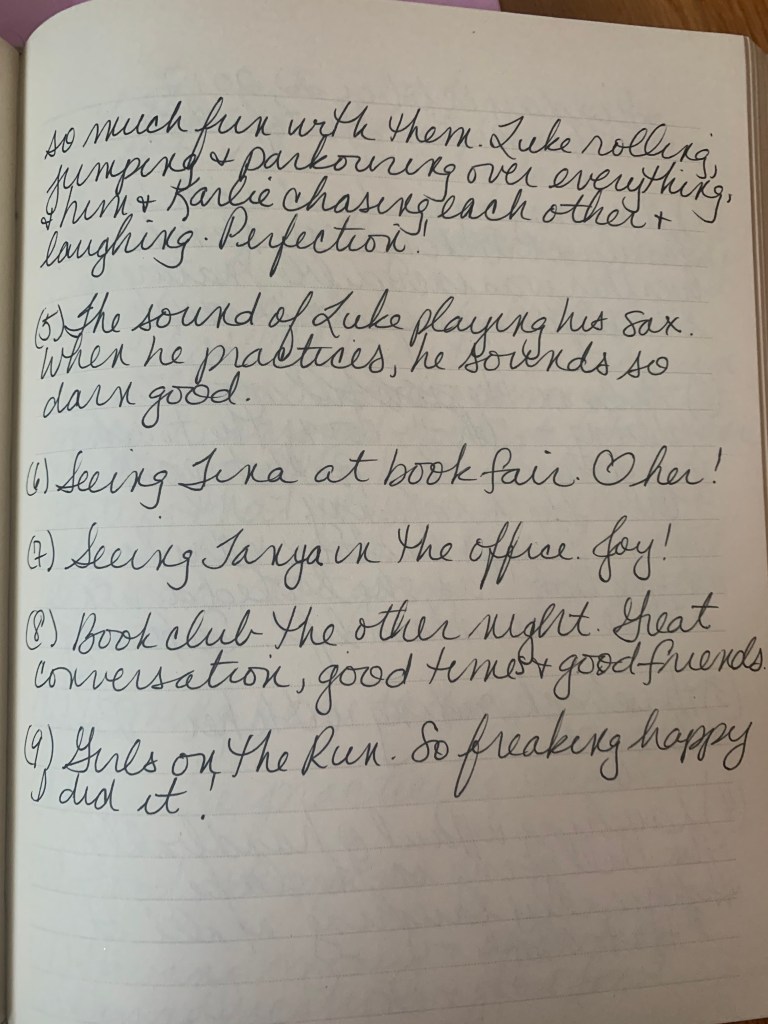 so much fun with them. Luke rolling,
jumping & parkouring over everything,
& him & Karlie chasing each other &
laughing. Perfection!
(5) The sound of Luke playing his sax.
When he practices, he sounds so
darn good.
(6) Seeing Tina at book fair. ♡ her!
(7) Seeing Tanya in the office. Joy!
(8) Book club the other night. Great
conversation, good times & good friends.
(9) Girls on the Run. So freaking happy
I did it!